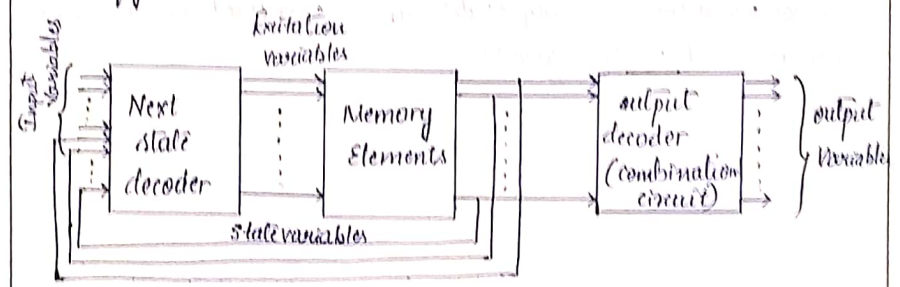 Input
variables
Exitation
variables
Next
state
decoder
Memory
Elements
output
decoder
(combination
circuit)
output
variable
State variables